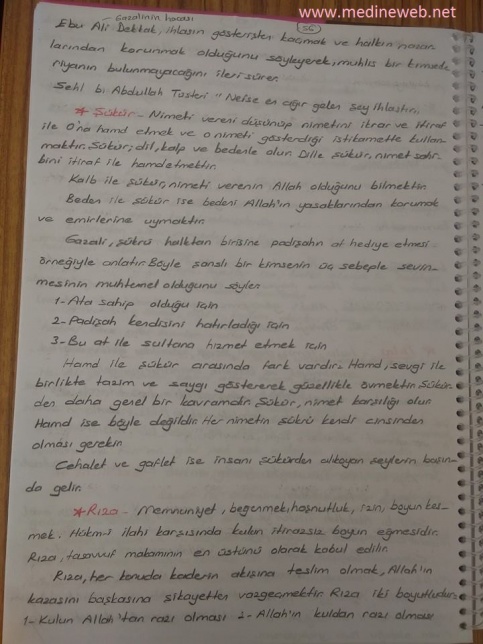 www.medineweb.net
55
Gazalinin hocası
Ebu Ali Dekkak, ihlasın gösterişten kaçmak ve halkın nazar-
larından korunmak olduğunu söyleyerek, muhlis bir kimsede
riyanın bulunmayacağını ileri sürer.
Sehl b. Abdullah Tusteri "Nefse en ağır gelen şey ihlastır.
* Şükür - Nimeti vereni düşünüp nimetini ikrar ve itiraf
ile O'na hamd etmek ve o nimeti gösterdiği istikamette kullan-
maktır. Şükür; dil, kalp ve bedenle olur. Dille şükür, nimet sahi-
bini itiraf ile hamdetmektir.
Kalb ile şükür, nimeti verenin Allah olduğunu bilmektir.
Beden ile şükür ise bedeni Allah'ın yasaklarından korumak
ve emirlerine uymaktır.
Gazali, şükrü halktan birisine padişahın at hediye etmesi
örneğiyle anlatır. Böyle şanslı bir kimsenin üç sebeple sevin-
mesinin muhtemel olduğunu söyler.
1- Ata sahip olduğu için
2- Padişah kendisini hatırladığı için
3- Bu at ile sultana hizmet etmek için
Hamd ile şükür arasında fark vardır. Hamd, sevgi ile
birlikte tazim ve saygı göstererek güzellikle övmektir. Şükür-
den daha genel bir kavramdır. Şükür, nimet karşılığı olur.
Hamd ise böyle değildir. Her nimetin şükrü kendi cinsinden
olması gerekir.
Cehalet ve gaflet ise insanı şükürden alıkoyan şeylerin başın-
da gelir.
* Rıza - Memnuniyet, beğenmek, hoşnutluk, izin, boyun kes-
mek. Hükm-i ilahi karşısında kulun itirazsız boyun eğmesidir.
Rıza, tasavvuf makamının en üstünü olarak kabul edilir.
Rıza, her konuda kaderin akışına teslim olmak, Allah'ın
kazasını başkasına şikayetten vazgeçmektir. Rıza iki boyutludur:
1- Kulun Allah'tan razı olması 2- Allah'ın kuldan razı olması